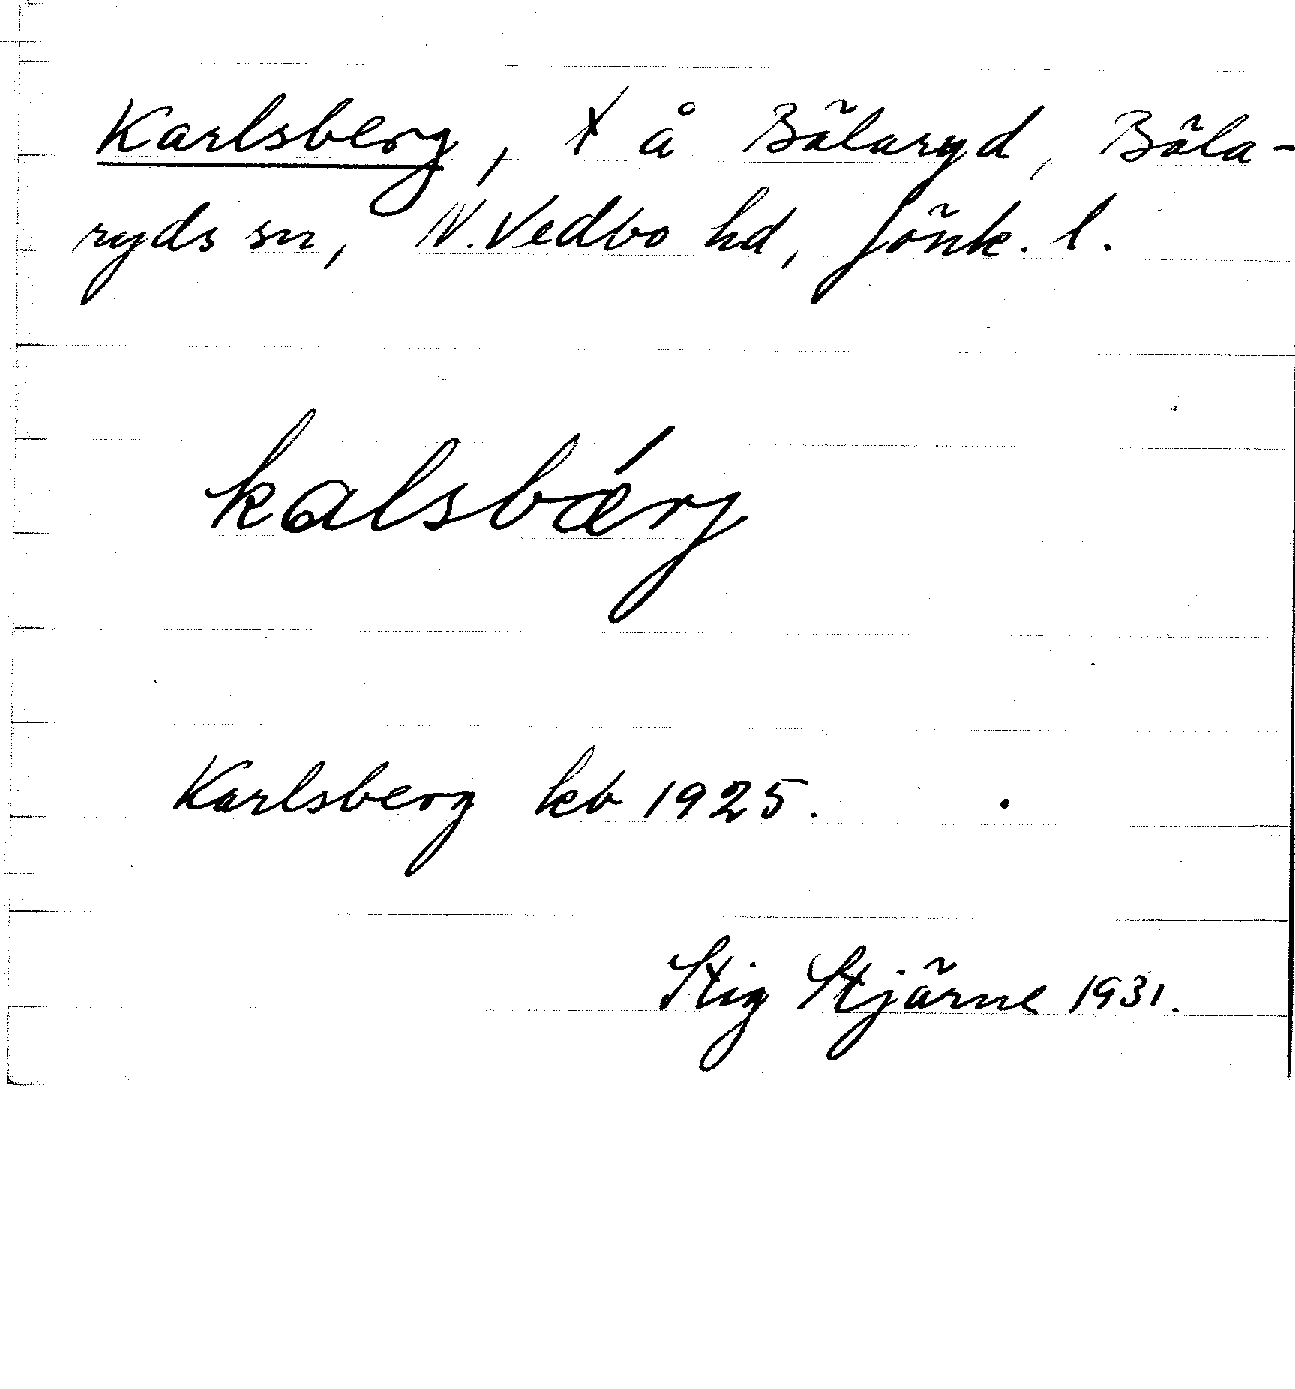 Karlsberg, x å Bälaryd, Bäla-
ryds sn, N. Vedbo hd, Jönk. l.
kalsbǽrj
Karlsberg kb 1925.
Stig Stjärne 1931.